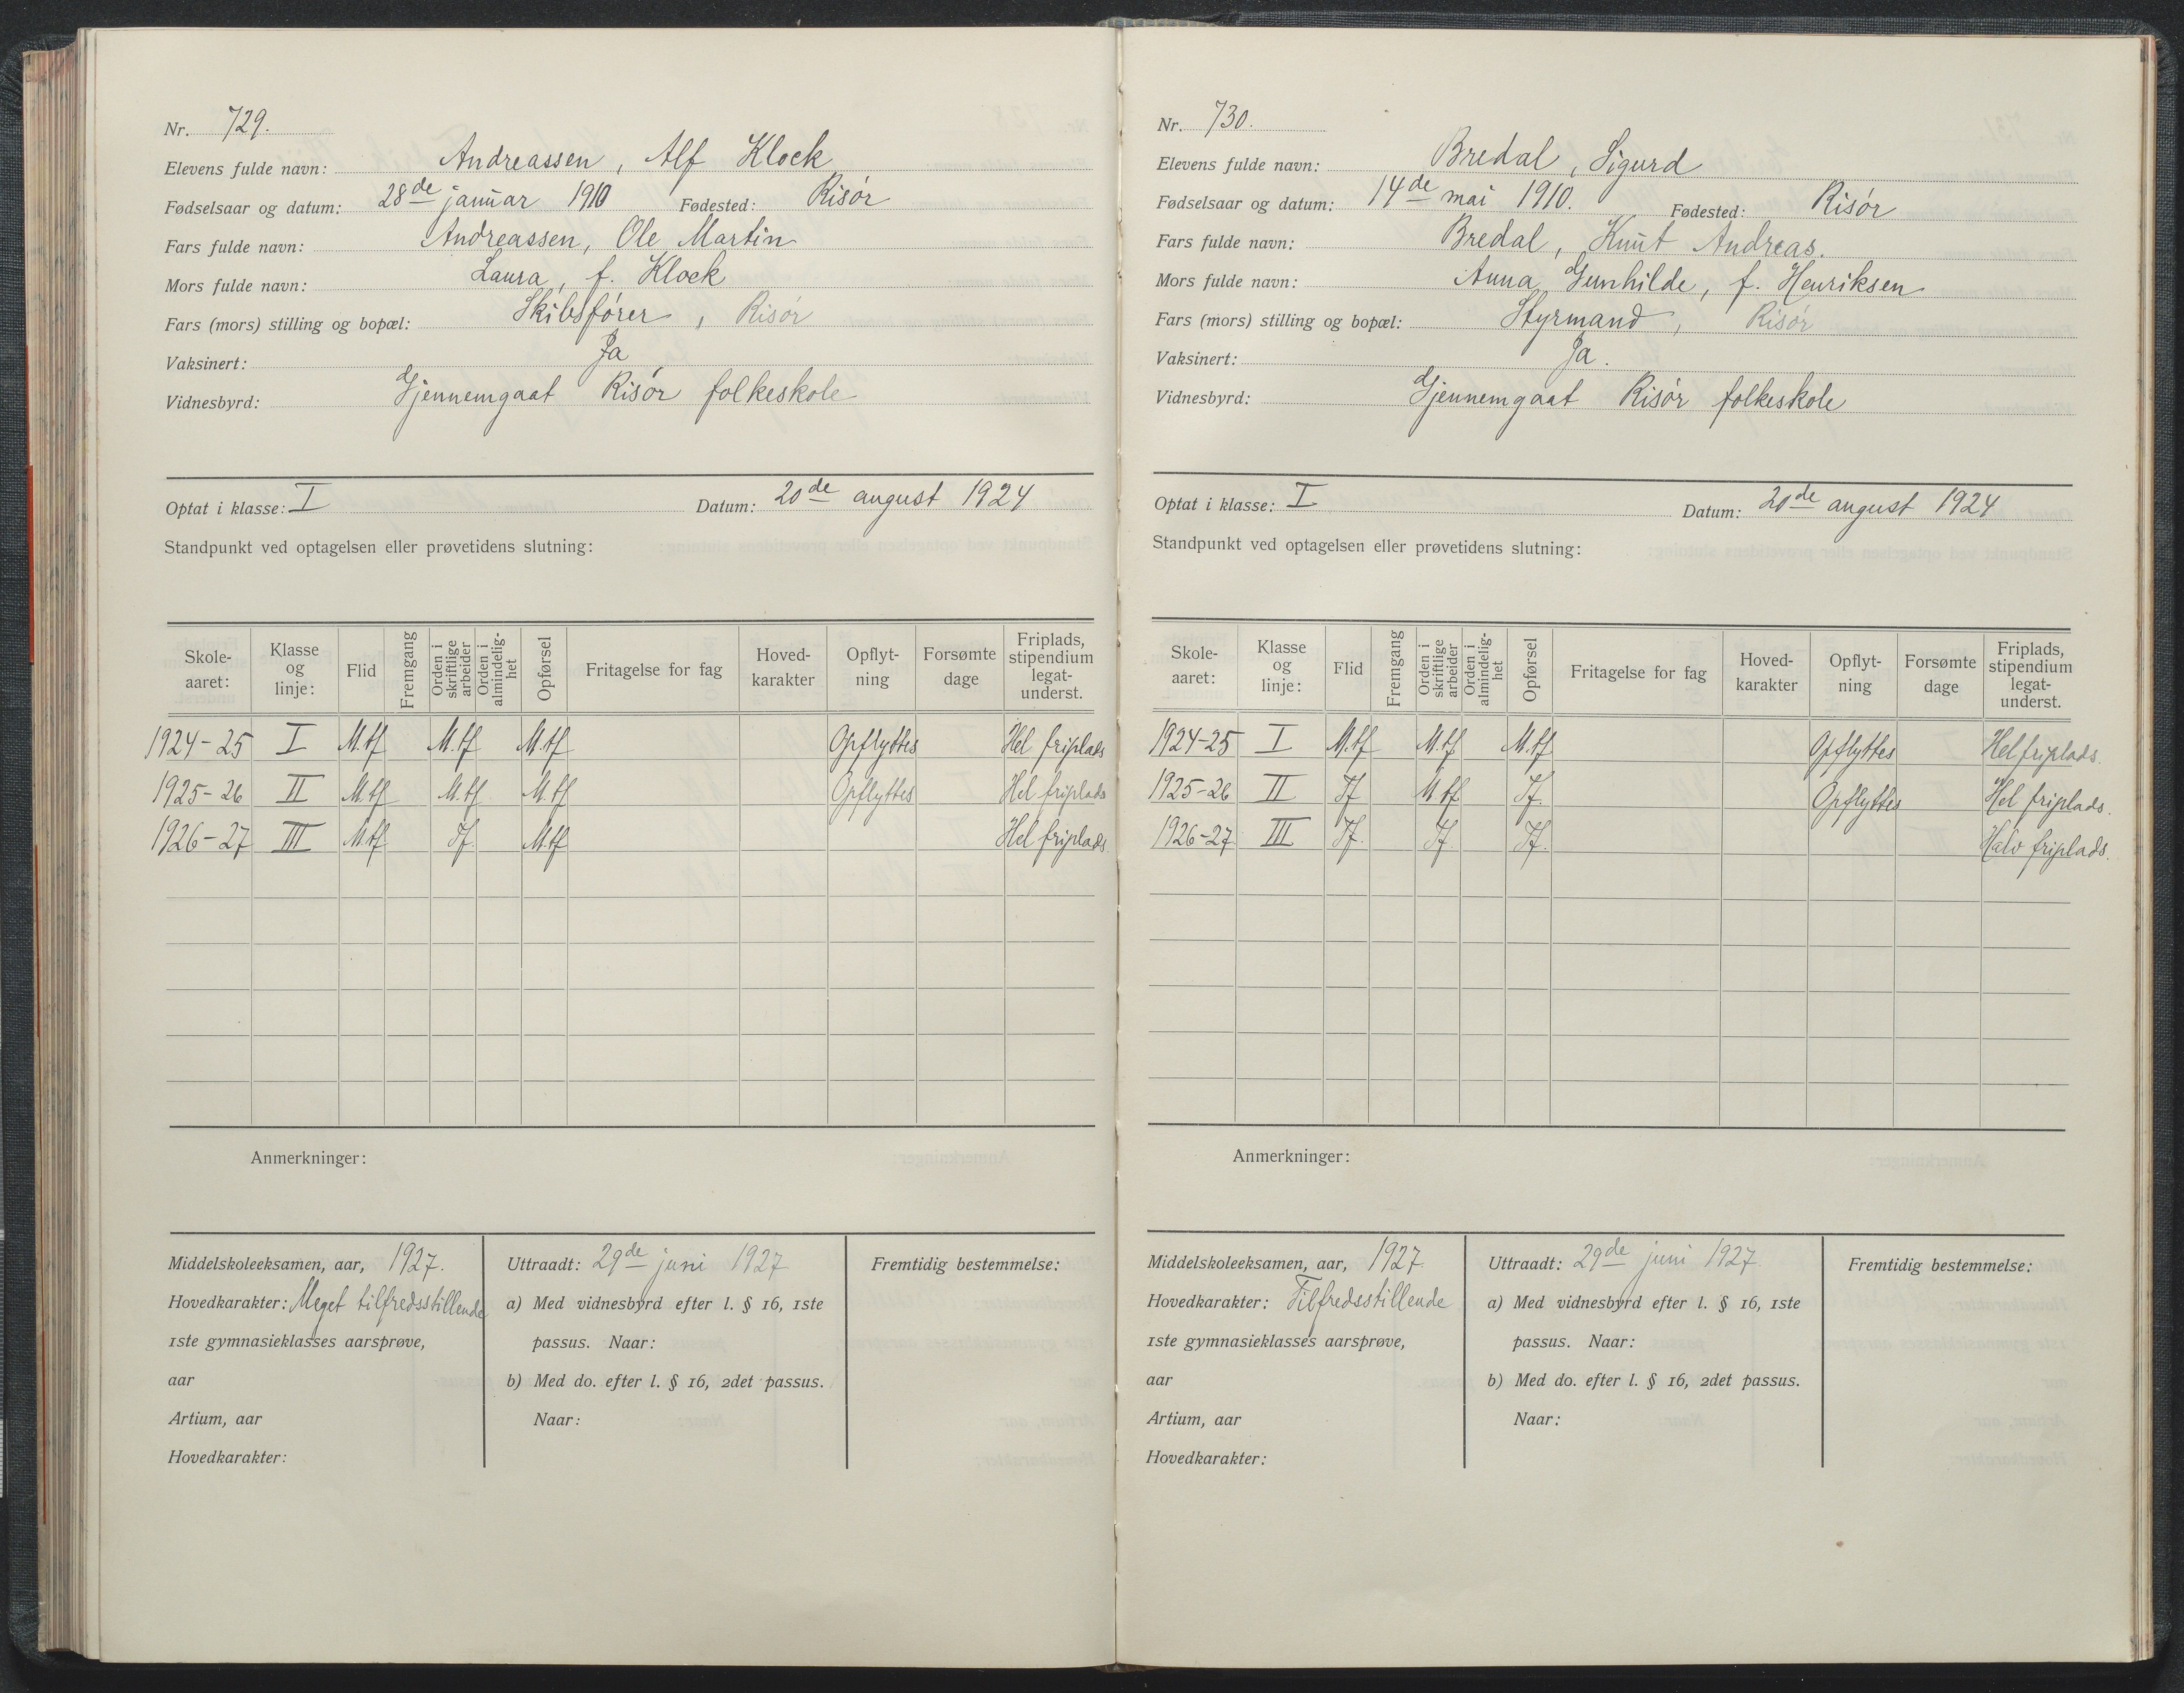 Nr. 729.
Elevens fulde navn: Andreassen, Alf Klock
Fødselsaar og datum: 28de januar 1910 Fødested: Risør
Fars fulde navn: Andreassen, Ole Martin
Mors fulde navn: Laura, f. Klock
Fars (mors) stilling og bopæl: Skibsfører, Risør
Vaksinert: Ja
Vidnesbyrd: Gjennemgaat Risør folkeskole
Optat i klasse: I Datum: 20de august 1924
Standpunkt ved optagelsen eller prøvetidens slutning:
Skole-aaret: Klasse og linje: Flid Fremgang Orden i skriftlige arbeider Orden i almindelig-het Opførsel Fritagelse for fag Hoved-karakter Opflyt-ning Forsømte dage Friplads, stipendium legat-underst.
1924-25 I M.tf M.tf M.tf Opflyttes Hel friplads
1925-26 II M.tf M.tf M.tf Opflyttes Hel friplads
1926-27 III M.tf Tf. M.tf Hel friplads.
Anmerkninger:
Middelskoleeksamen, aar, 1927.
Hovedkarakter: Meget tilfredsstillende
1ste gymnasieklasses aarsprøve,
aar
Artium, aar
Hovedkarakter:
Uttraadt: 29de juni 1927
a) Med vidnesbyrd efter l. § 16, 1ste
passus. Naar:
b) Med do. efter l. § 16, 2det passus.
Naar:
Fremtidig bestemmelse:
Nr. 730.
Elevens fulde navn: Bredal, Sigurd
Fødselsaar og datum: 14de mai 1910. Fødested: Risør
Fars fulde navn: Bredal, Knut Andreas.
Mors fulde navn: Anna Gunhilde, f. Henriksen
Fars (mors) stilling og bopæl: Styrmand, Risør
Vaksinert: Ja.
Vidnesbyrd: Gjennemgaat Risør folkeskole
Optat i klasse: I Datum: 20de august 1924
Standpunkt ved optagelsen eller prøvetidens slutning:
Skole-aaret: Klasse og linje: Flid Fremgang Orden i skriftlige arbeider Orden i almindelig-het Opførsel Fritagelse for fag Hoved-karakter Opflyt-ning Forsømte dage Friplads, stipendium legat-underst.
1924-25 I M.tf M.tf M.tf Opflyttes Hel friplads.
1925-26 II Tf M.tf Tf. Opflyttes Hel friplads.
1926-27 III Tf. Tf. Tf. Halv friplads.
Anmerkninger:
Middelskoleeksamen, aar, 1927.
Hovedkarakter: Tilfredsstillende
1ste gymnasieklasses aarsprøve,
aar
Artium, aar
Hovedkarakter:
Uttraadt: 29de juni 1927
a) Med vidnesbyrd efter l. § 16, 1ste
passus. Naar:
b) Med do. efter l. § 16, 2det passus.
Naar:
Fremtidig bestemmelse: